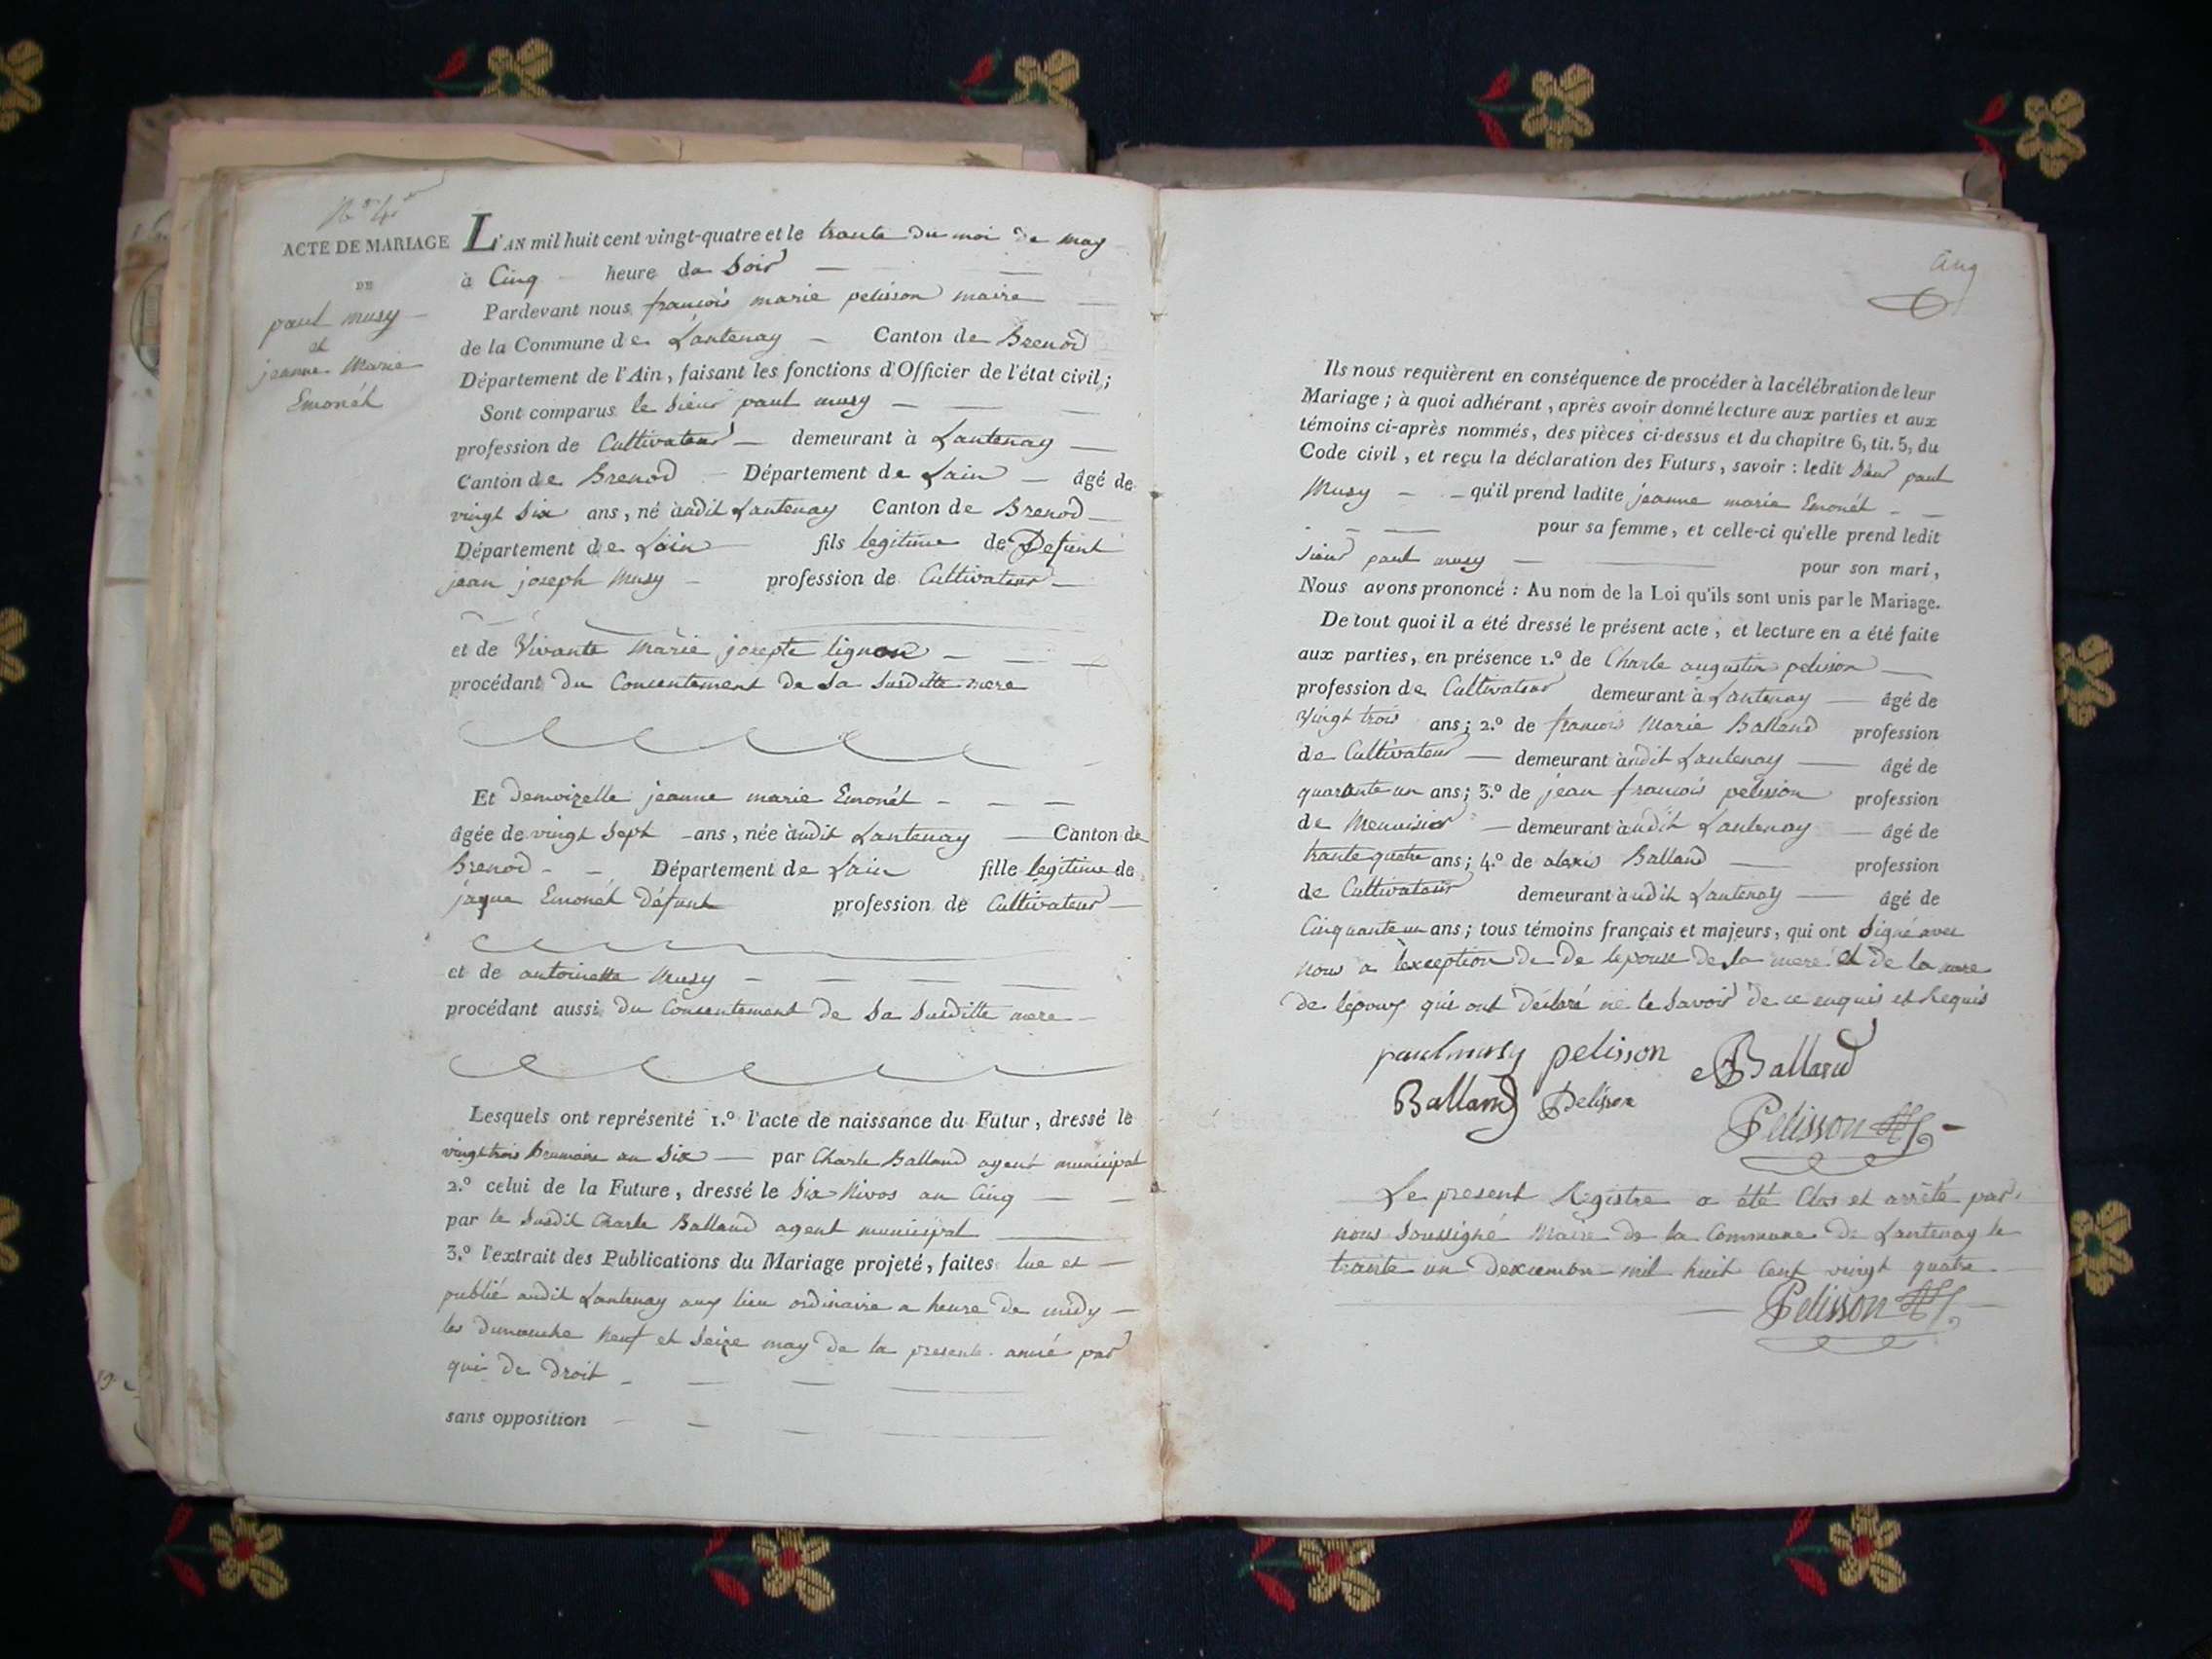 N° 4
ACTE DE MARIAGE
DE
paul musy
et
jeanne Marie
Emonét
L'AN mil huit cent vingt-quatre et le trante du moi de may
à Cinq heure da Soir
Pardevant nous françois marie pelisson maire
de la Commune de Lantenay Canton de Brenod
Département de l'Ain, faisant les fonctions d'Officier de l'état civil;
Sont comparus le Sieur paul musy
profession de Cultivateur demeurant à Lantenay
Canton de Brenod Département de Lain âgé de
vingt Six ans, né audit Lantenay Canton de Brenod
Département de Lain fils legitime de Defunt
jean joseph Musy profession de Cultivateur
et de Vivante Marie josepte lignon
procédant du Consentement de Sa Susditte mere
Et demoizelle jeanne marie Emonét
âgée de vingt Sept ans, née audit Lantenay Canton de
Brenod Département de Lain fille legitime de
jaque Emonét Défunt profession de Cultivateur
et de antoinette Musy
procédant aussi du Consentement de Sa Susditte mere
Lesquels ont représenté 1.° l'acte de naissance du Futur, dressé le
vingt trois Brumaire an Six par Charle Balland agent municipal
2.° celui de la Future, dressé le Six Nivos an Cinq
par le Susdit Charle Balland agent municipal
3.° l'extrait des Publications du Mariage projeté, faites lue et
publié audit Lantenay aux lieu ordinaire a heure de midy
les dimanche neuf et Seize may de la presente année par
qui de droit
sans opposition
Cinq
Ils nous requièrent en conséquence de procéder à la célébration de leur
Mariage; à quoi adhérant, après avoir donné lecture aux parties et aux
témoins ci-après nommés, des pièces ci-dessus et du chapitre 6, tit. 5, du
Code civil, et reçu la déclaration des Futurs, savoir : ledit Sieur paul
Musy qu'il prend ladite jeanne marie Emonét
pour sa femme, et celle-ci qu'elle prend ledit
Sieur paul musy pour son mari,
Nous avons prononcé : Au nom de la Loi qu'ils sont unis par le Mariage.
De tout quoi il a été dressé le présent acte, et lecture en a été faite
aux parties, en présence 1.° de Charle augustin pelisson
profession de Cultivateur demeurant à Lantenay âgé de
Vingt trois ans; 2.° de françois Marie Balland profession
de Cultivateur demeurant audit Lantenay âgé de
quarante un ans; 3.° de jean françois pelisson profession
de Menuisier demeurant audit Lantenay âgé de
trante quatre ans; 4.° de alexis Balland profession
de Cultivateur demeurant audit Lantenay âgé de
Cinquante un ans; tous témoins français et majeurs, qui ont Signé avec
nous a lexception de De lepouse de Sa mere et de la mere
de lepoux qui ont déclaré ne le Savoir de ce enquis et Requis
paul musy pelisson Balland
Balland Pelisson
Pelisson
Le present Registre a été Clos et arrêté par
nous Soussigné Maire de la Commune de Lantenay le
trante un dexcembre mil huit Cent vingt quatre
Pelisson